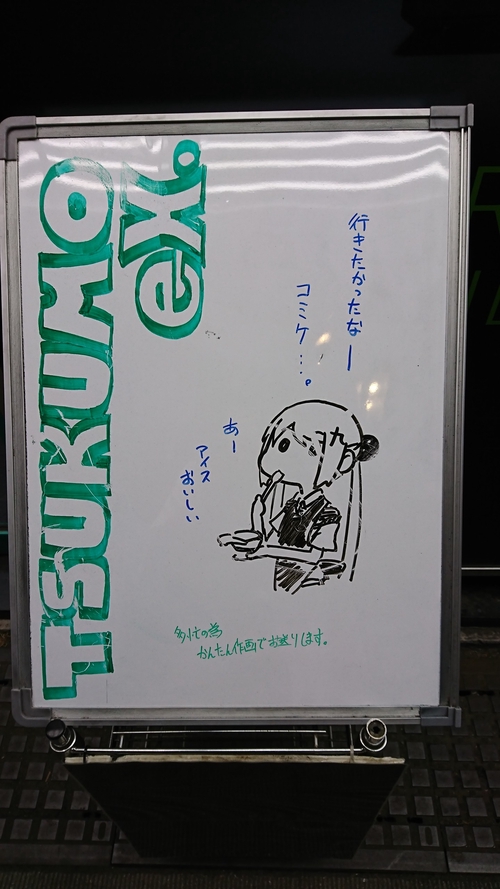 TSUKUMO
eX.
行きたかったなー
コミケ…。
あー
アイス
おいしい
九
多忙の為
かんたん作画でお送りします。